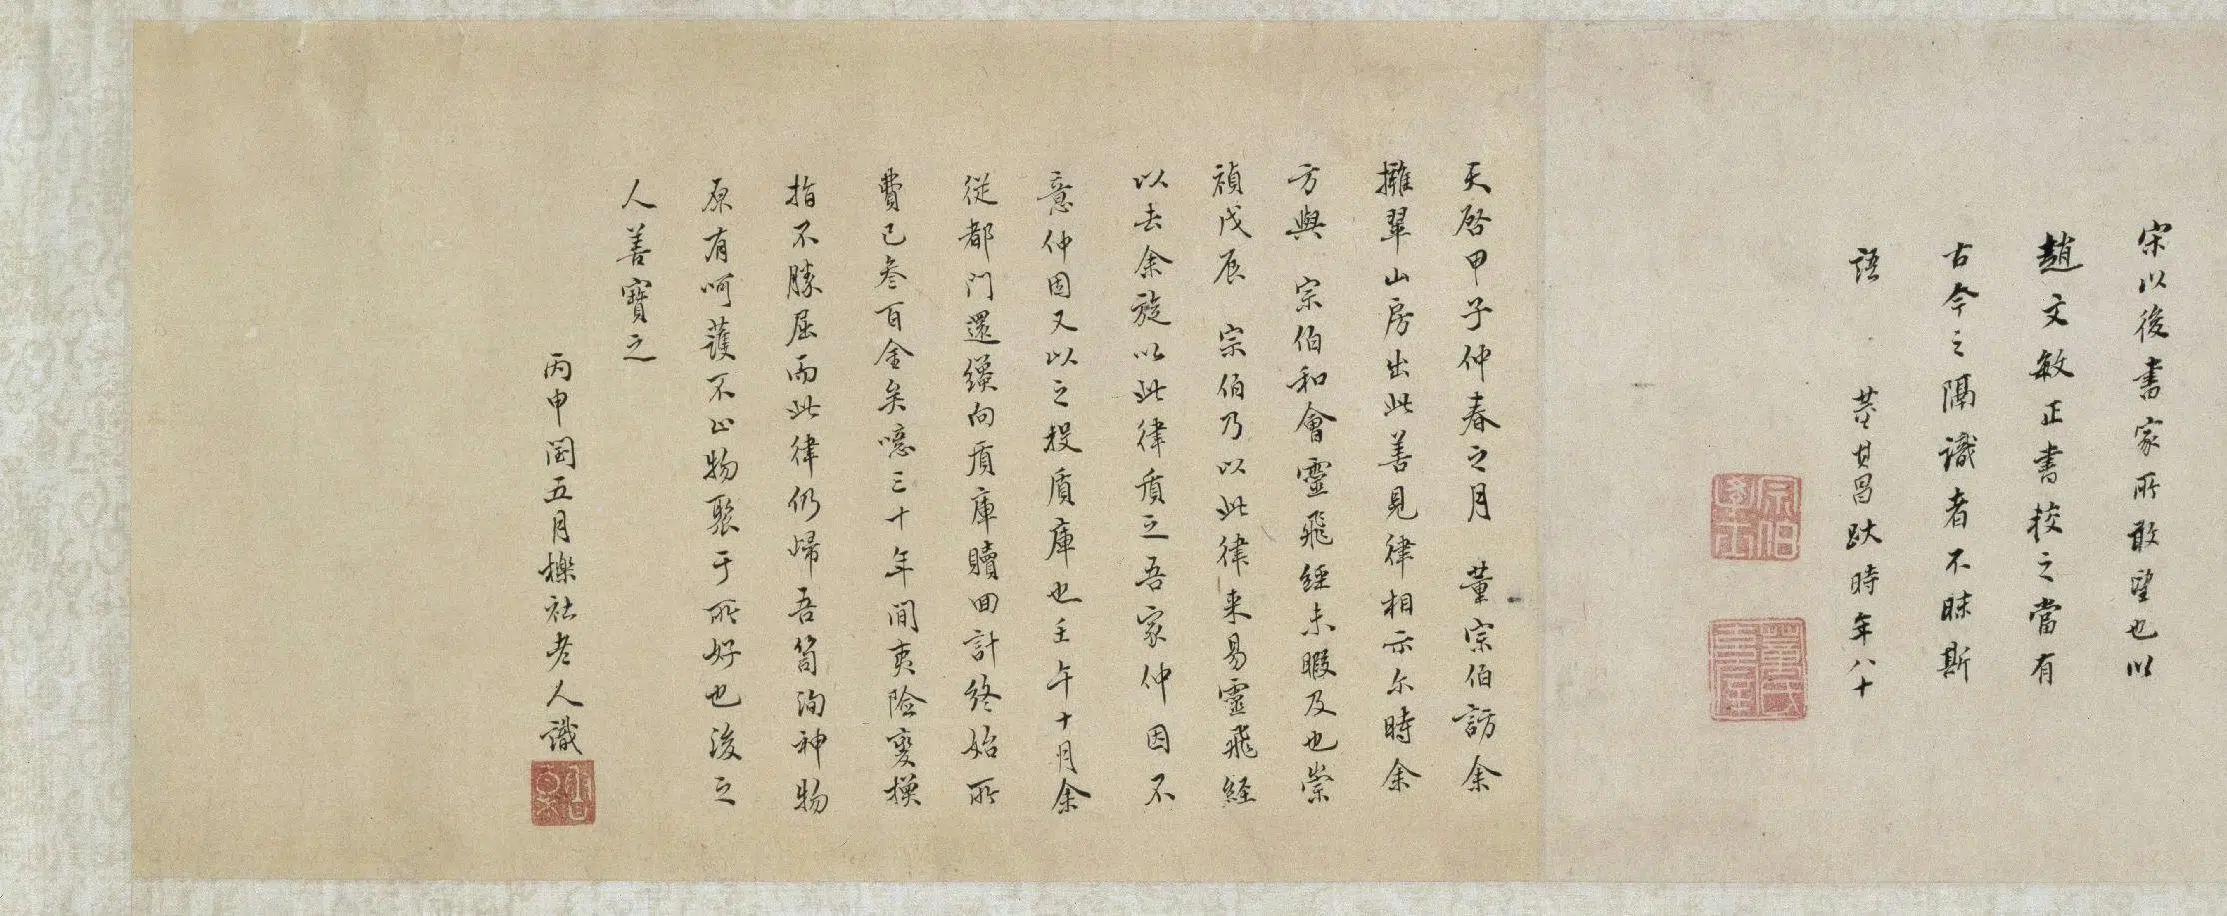 宋以後書家所敢望也以
趙文敏正書較之當有
古今之隔識者不昧斯
語　董其昌跋時年八十
宗伯學士
董氏玄宰
天啓甲子仲春之月　董宗伯訪余
擁翠山房出此善見律相示尔時余
方與　宗伯和會靈飛經未暇及也崇
禎戊辰　宗伯乃以此律来易靈飛経
以去余旋以此律質之吾家仲因不
意仲因又以之投質庫也壬午十月余
從都門還纔向質庫贖回計終始所
費已叁百金矣噫三十年間夷險變換
指不勝屈而此律仍歸吾笥洵神物
原有呵護不止物聚于所好也後之
人善寶之
丙申閏五月櫟社老人識